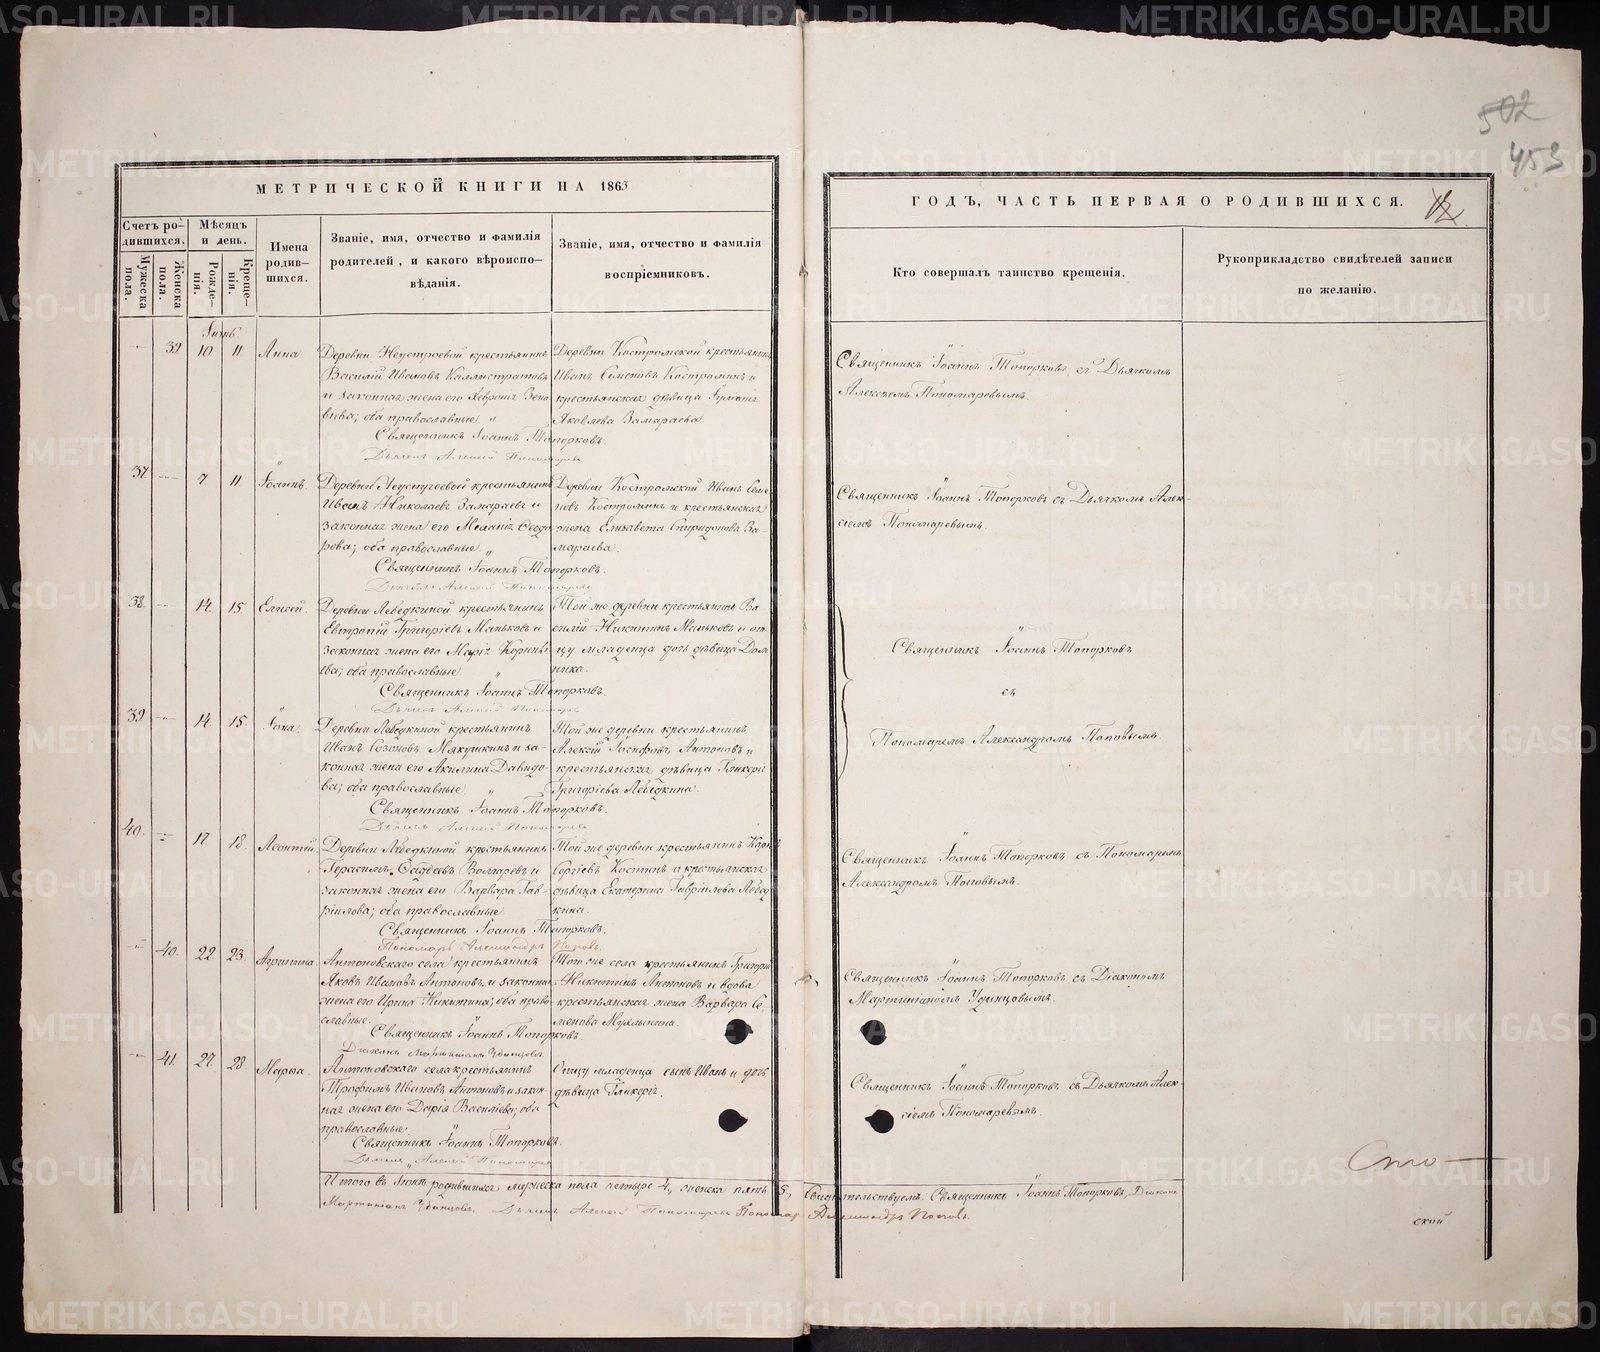 МЕТРИЧЕСКОЙ КНИГИ НА 1863
Счетъ родившихся.
Мужеска пола.
Женска пола.
Мѣсяцъ и день.
Рожденія.
Крещенія.
Имена родившихся.
Званіе, имя, отчество и фамилія
родителей, и какого вѣроиспо-
вѣданія.
Званіе, имя, отчество и фамилія
воспріемниковъ.
Іюнь
39 10 11 Анна
Деревни Неустроевой крестьянинъ
Василій Ивановъ Каллистратовъ
и законная жена его Хевронія Зено
вьева; оба православные
Деревни Костромской крестьянинъ
Иванъ Семеновъ Костроминъ и
крестьянская дѣвица
Яковлева Замараева.
Священникъ Іоаннъ Топорковъ.
Дьячекъ Алексѣй Пономаревъ
37 7 11 Іоаннъ
Деревни Неустроевой крестьянинъ
Иванъ Николаевъ Замараевъ и
законная жена его Меланія Ѳеодо
рова; оба православные.
Деревни Костромской Иванъ Семе
новъ Костроминъ и крестьянская
жена Елизавета Спиридонова За
мараева.
Священникъ Іоаннъ Топорковъ.
Дьячекъ Алексѣй Пономаревъ
38. 14. 15. Елисей.
Деревни Лебедкиной крестьянинъ
Евтропій Григорьевъ Маньковъ и
законная жена его Марія Корнилье
ва; оба православные
Той же деревни крестьянинъ Ва
силій Никитинъ Маньковъ и от
цу младенца дочь дѣвица Дом
ника.
Священникъ Іоаннъ Топорковъ.
Дьячекъ Алексѣй Пономаревъ
39. 14. 15. Іона.
Деревни Лебедкиной крестьянинъ
Иванъ Созоновъ Мякушкинъ и за-
конная жена его Акилина Давидо-
ва; оба православные
Той же деревни крестьянинъ
Алексій Іосифовъ Антоновъ и
крестьянская дѣвица Гликерія
Григоріева Лебедкина.
Священникъ Іоаннъ Топорковъ.
Дьячекъ Алексѣй Пономаревъ
40. 17. 18. Леонтій.
Деревни Лебедкиной крестьянинъ
Герасимъ Ѳаддеевъ и
законная жена его Варвара Гав-
ріилова; оба православные.
Той же деревни крестьянинъ
Сергіевъ Костинъ и крестьянская
дѣвица Екатерина Гавріилова Лебед
кина.
Священникъ Іоаннъ Топорковъ.
Пономарь Александръ Поповъ.
40. 22. 23. Агрипина.
Антоновскаго села крестьянинъ
Яковъ Ивановъ Антоновъ и законная
жена его Ирина Никитина; оба право
славные.
Того же села крестьянинъ Григорій
Никитинъ Антоновъ и вдова
крестьянская жена Варвара Се-
менова Мухлынина.
Священникъ Іоаннъ Топорковъ.
Діаконъ Мартиніанъ Удинцовъ.
41. 27. 28. Марья.
Антоновскаго села крестьянинъ
Трофимъ Ивановъ Антоновъ и закон-
ная жена его Дарія Василіева; оба
православные
Отцу младенца сынъ Иванъ и дочь
дѣвица Гликерія.
Священникъ Іоаннъ Топорковъ.
Дьячекъ Алексѣй Пономаревъ
Итого въ Іюнѣ родившихся мужеска пола четыре 4, женска пять 5, Свидѣтельствуемъ: Священникъ Іоаннъ Топорковъ, Діаконъ
Мартиніанъ Удинцовъ, Дьячекъ Алексѣй Пономаревъ Пономарь Александръ Поповъ.
502
453
ГОДЪ, ЧАСТЬ ПЕРВАЯ О РОДИВШИХСЯ. 12.
Кто совершалъ таинство крещенія.
Рукоприкладство свидѣтелей записи
по желанію.
Священникъ Іоаннъ Топорковъ, съ Дьячкомъ
Алексѣемъ Пономаревымъ.
Священникъ Іоаннъ Топорковъ съ Дьячкомъ Алек-
сіемъ Пономаревымъ.
Священникъ Іоаннъ Топорковъ
съ
Пономаремъ Александромъ Поповымъ.
Священникъ Іоаннъ Топорковъ съ Пономаремъ
Александромъ Поповымъ.
Священникъ Іоаннъ Топорковъ съ Діакономъ
Мартиніаномъ Удинцовымъ.
Священникъ Іоаннъ Топорковъ съ Дьячкомъ Алек-
сіемъ Пономаревымъ.
ской
METRIKI.GASO-URAL.RU